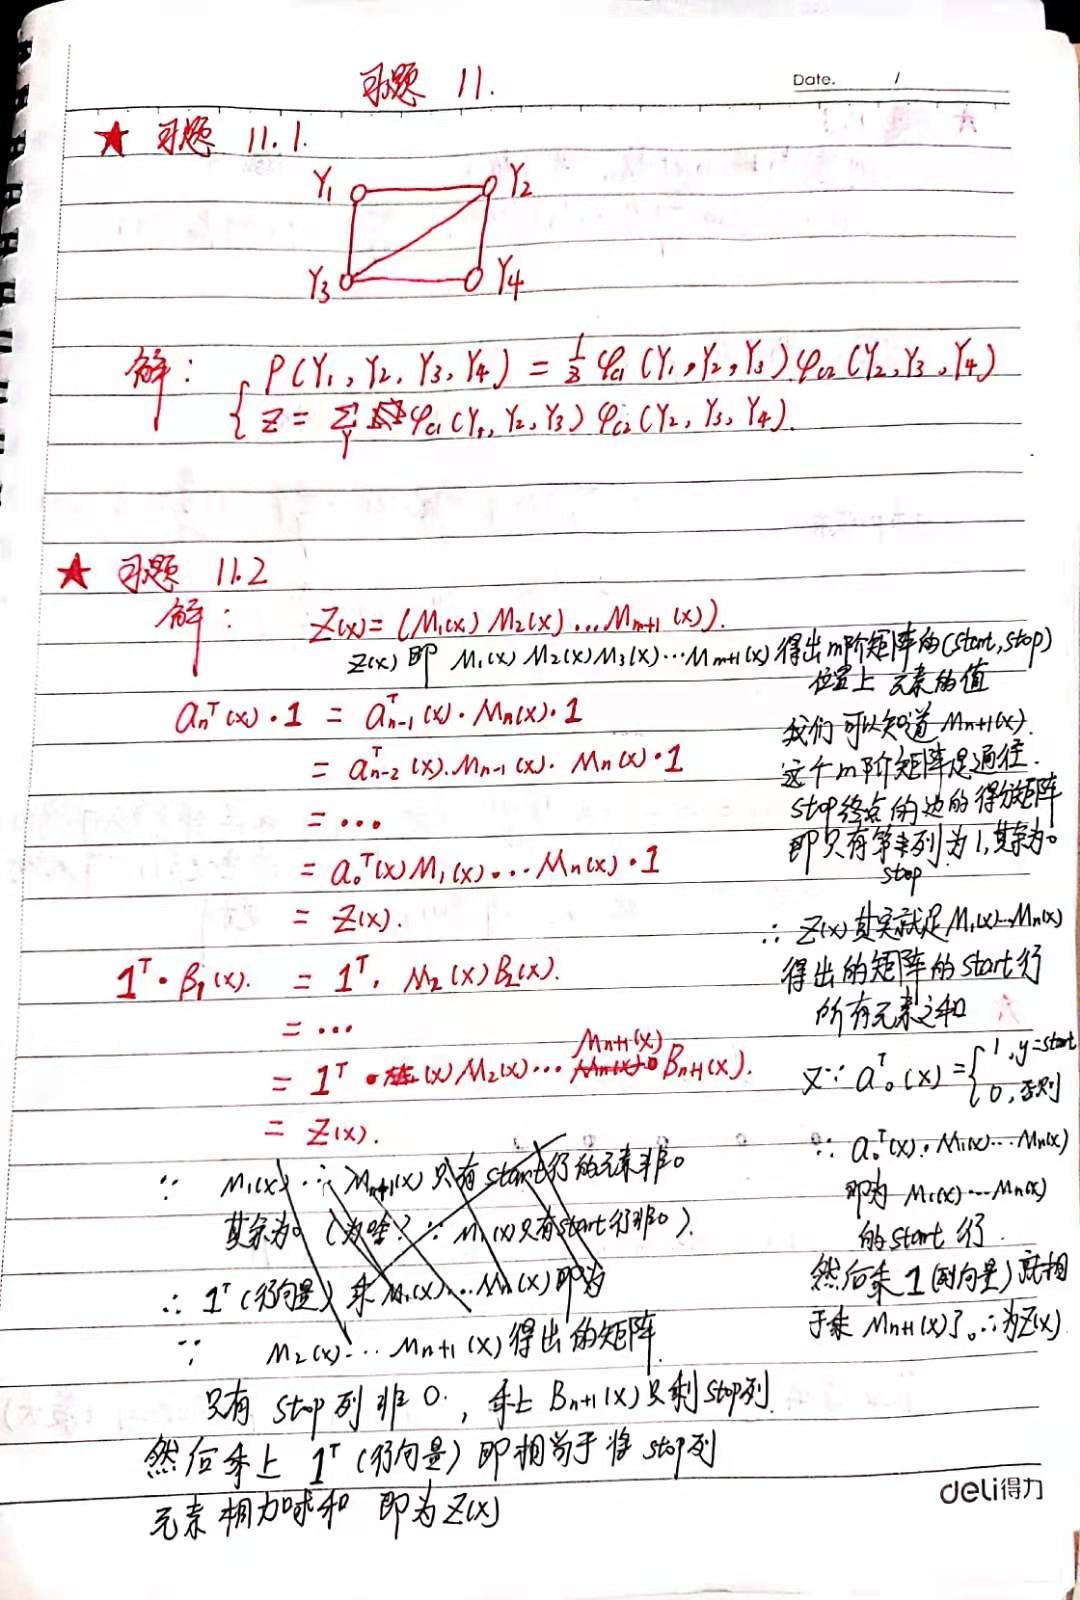 习题 11.
Date. /
★ 习题 11.1.
Y₁ Y₂
Y₃ Y₄
解: P(Y₁, Y₂, Y₃, Y₄) = 1/Z φc₁(Y₁, Y₂, Y₃) φc₂(Y₂, Y₃, Y₄)
Z = ∑Y φc₁(Y₁, Y₂, Y₃) φc₂(Y₂, Y₃, Y₄).
★ 习题 11.2
解: Z(x) = (M₁(x) M₂(x) ... Mm+1(x)).
Z(x) 即 M₁(x) M₂(x) M₃(x) ... Mm+1(x) 得出m阶矩阵的(start, stop)
位置上 元素的值
aₙᵀ(x)·1 = aₙ₋₁ᵀ(x)·Mₙ(x)·1
= aₙ₋₂ᵀ(x)·Mₙ₋₁(x)·Mₙ(x)·1
= ...
= a₀ᵀ(x) M₁(x) ... Mₙ(x)·1
= Z(x).
1ᵀ·β₁(x). = 1ᵀ. M₂(x) β₂(x).
= ...
Mn+1(x)
= 1ᵀ · (x) M₂(x) ... Bn+1(x).
= Z(x).
我们可以知道 Mn+1(x).
这个m阶矩阵是通往
stop终点的边的得分矩阵
即只有第 列为1,其余为0
stop
∴ Z(x)其实就是 M₁(x)...Mn(x)
得出的矩阵的 start 行
所有元素之和
又∵ a₀ᵀ(x) = { 1, y=start
0, 否则
∴ a₀ᵀ(x)·M₁(x)...Mn(x)
即为 M₁(x)...Mn(x)
的 start 行.
然后乘 1 (列向量) 就相
于乘 Mn+1(x)了。∴为Z(x)
∵ M₁(x) ∴ Mn+1(x) 只有 start 行的元素非0
其余为0 (为啥? ∵ M₁(x)只有start行非0).
∴ 1ᵀ(行向量) 乘 M₁(x)...Mn(x) 即为
∵ M₂(x)... Mn+1(x) 得出的矩阵
只有 stop 列非 0., 乘上 Bn+1(x) 只剩stop列.
然后乘上 1ᵀ(行向量) 即相当于将 stop列
元素相加求和 即为 Z(x)
deli得力